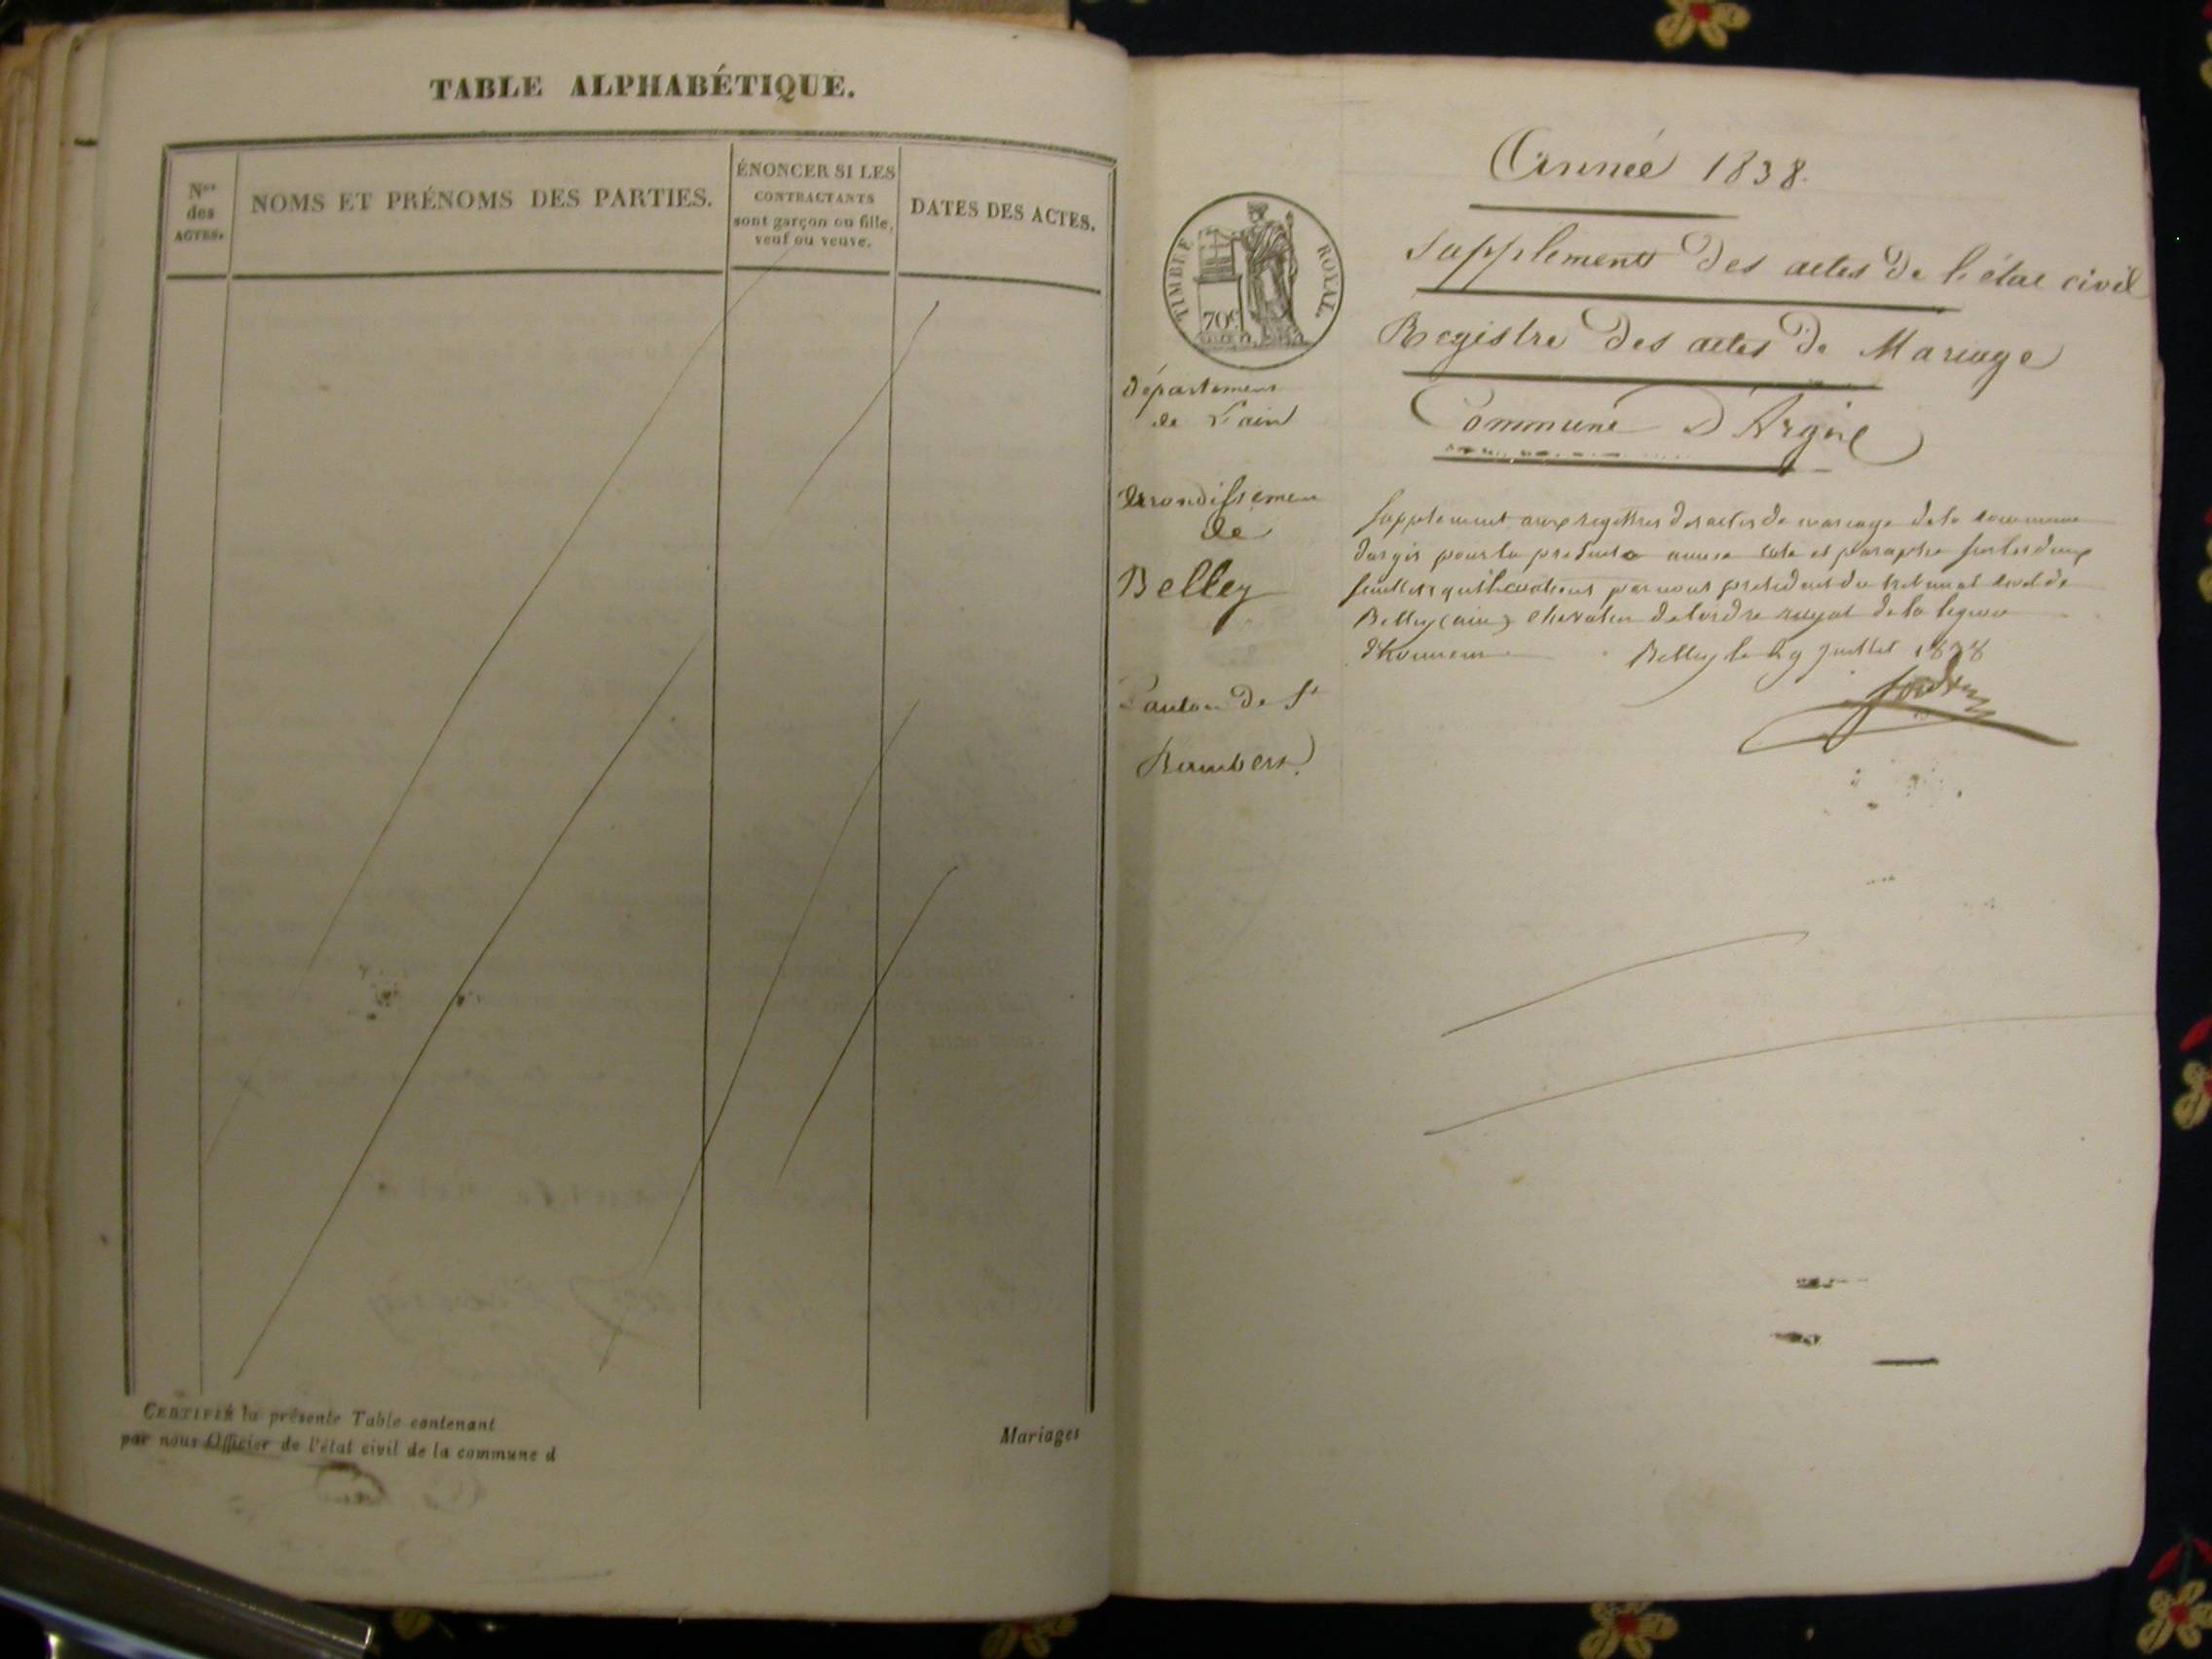 TABLE ALPHABÉTIQUE.
Nos
des
ACTES.
NOMS ET PRÉNOMS DES PARTIES.
ÉNONCER SI LES
CONTRACTANTS
sont garçon ou fille,
veuf ou veuve.
DATES DES ACTES.
CERTIFIÉ la présente Table contenant
Mariages
par nous Officier de l'état civil de la commune d
TIMBRE ROYAL.
70c
Département
de L'ain
Arrondissement
de
Belley
Canton de St
Rambert.
Année 1838.
Supplement des actes de l'état civil
Registre des actes de Mariage
Commune D'Argis
Supplement aux registres des actes de mariage de la commune
dargis pour la presente annee coté et paraphé sur les deux
feuillets qu'il contient par nous president du tribunal civil de
Belley (ain) chevalier de l'ordre royal de la legion
d'honneur Belley le 29 juillet 1838